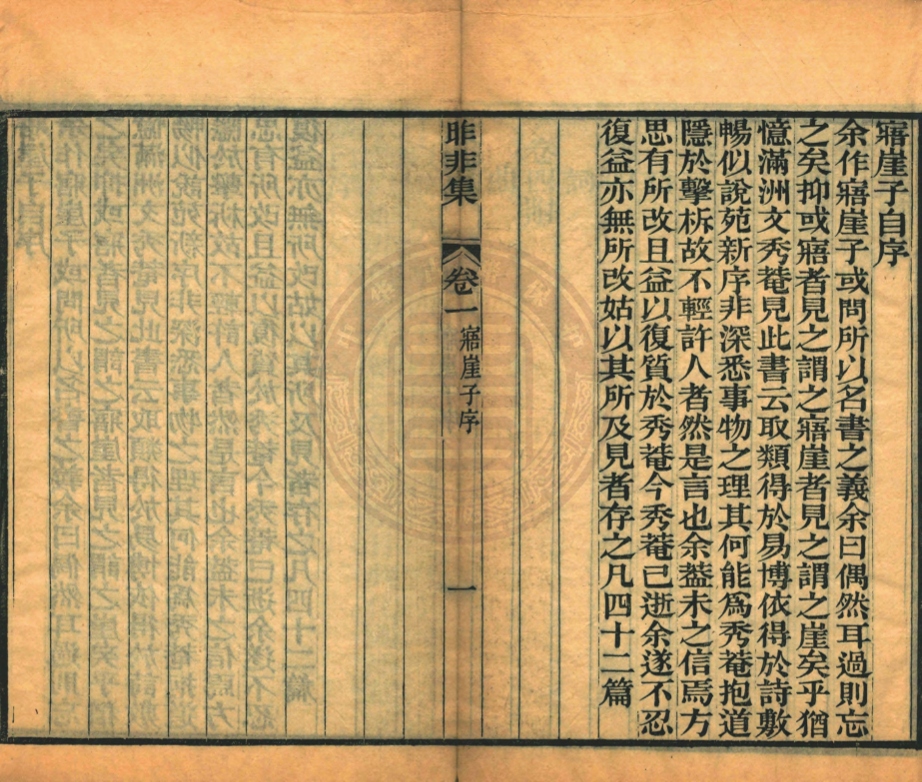 寤崖子自序
余作寤崖子或問所以名書之義余曰偶然耳過則忘
之矣抑或寤者見之謂之寤崖者見之謂之崖矣乎猶
憶滿洲文秀菴見此書云取類得於易博依得於詩敷
暢似說苑新序非深悉事物之理其何能爲秀菴抱道
隱於擊柝故不輕許人者然是言也余葢未之信焉方
思有所改且益以復質於秀菴今秀菴已逝余遂不忍
復益亦無所改姑以其所及見者存之凡四十二篇
昨非集
卷一
寤崖子序
一